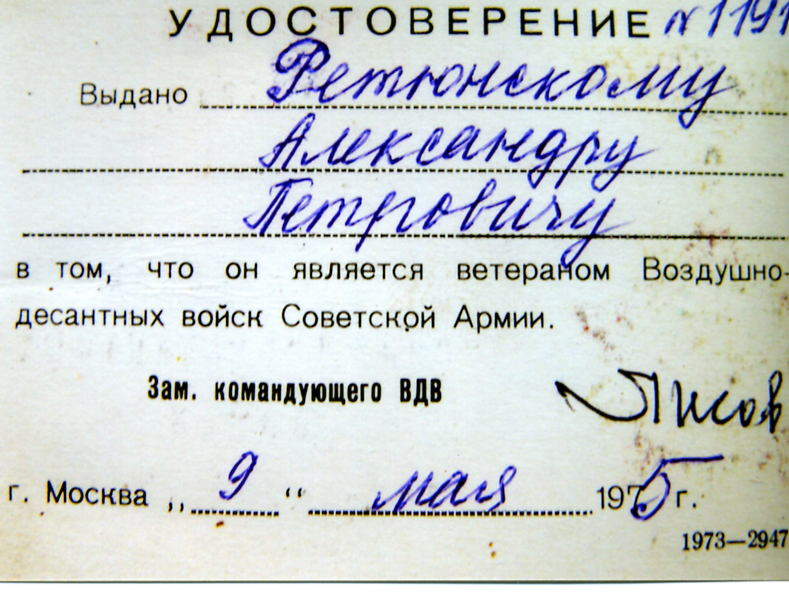 УДОСТОВЕРЕНИЕ № 1191
Выдано Ретюнскому
Александру
Петровичу
в том, что он является ветераном Воздушно-
десантных войск Советской Армии.
Зам. командующего ВДВ Лисов
г. Москва „9“ мая 1975 г.
1973—2947